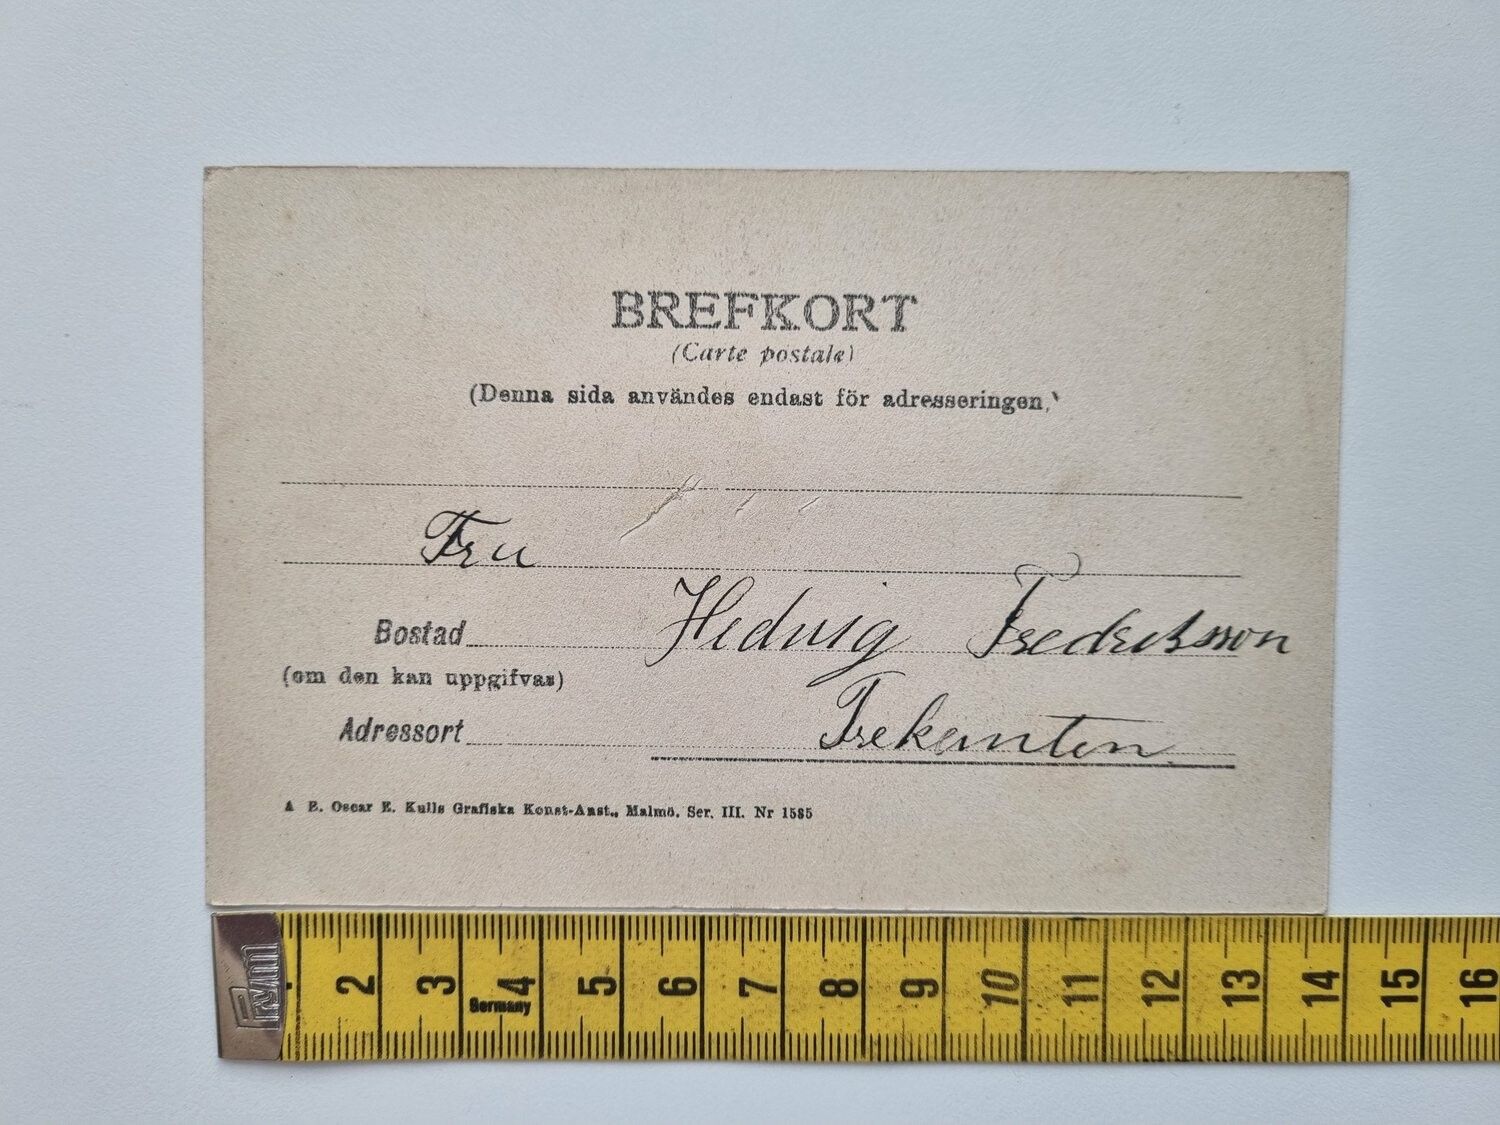 BREFKORT
(Carte postale)
(Denna sida användes endast för adresseringen.)
Fru
Hedvig Fredriksson
Bostad
(om den kan uppgifvas)
Trekanten
Adressort
A. B. Oscar E. Kulls Grafiska Konst-Anst., Malmö. Ser. III. Nr 1585
Prym
2 3 4 5 6 7 8 9 10 11 12 13 14 15 16
Germany